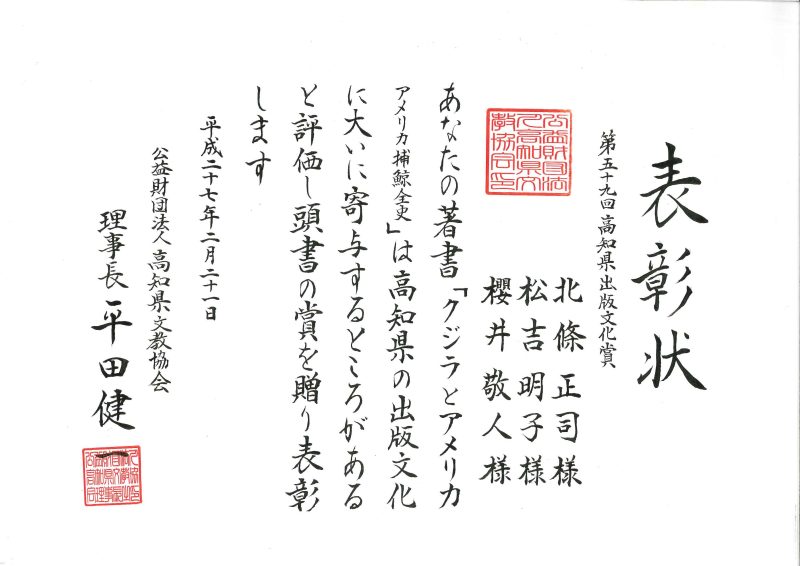 表彰状
第五十九回高知県出版文化賞
北條正司様
松吉明子様
櫻井敬人様
あなたの著書「クジラとアメリカ
アメリカ捕鯨全史」は高知県の出版文化
に大いに寄与するところがある
と評価し頭書の賞を贈り表彰
します
平成二十七年二月二十一日
公益財団法人高知県文教協会
理事長 平田健一
公益財団法
人高知県文
教協会印